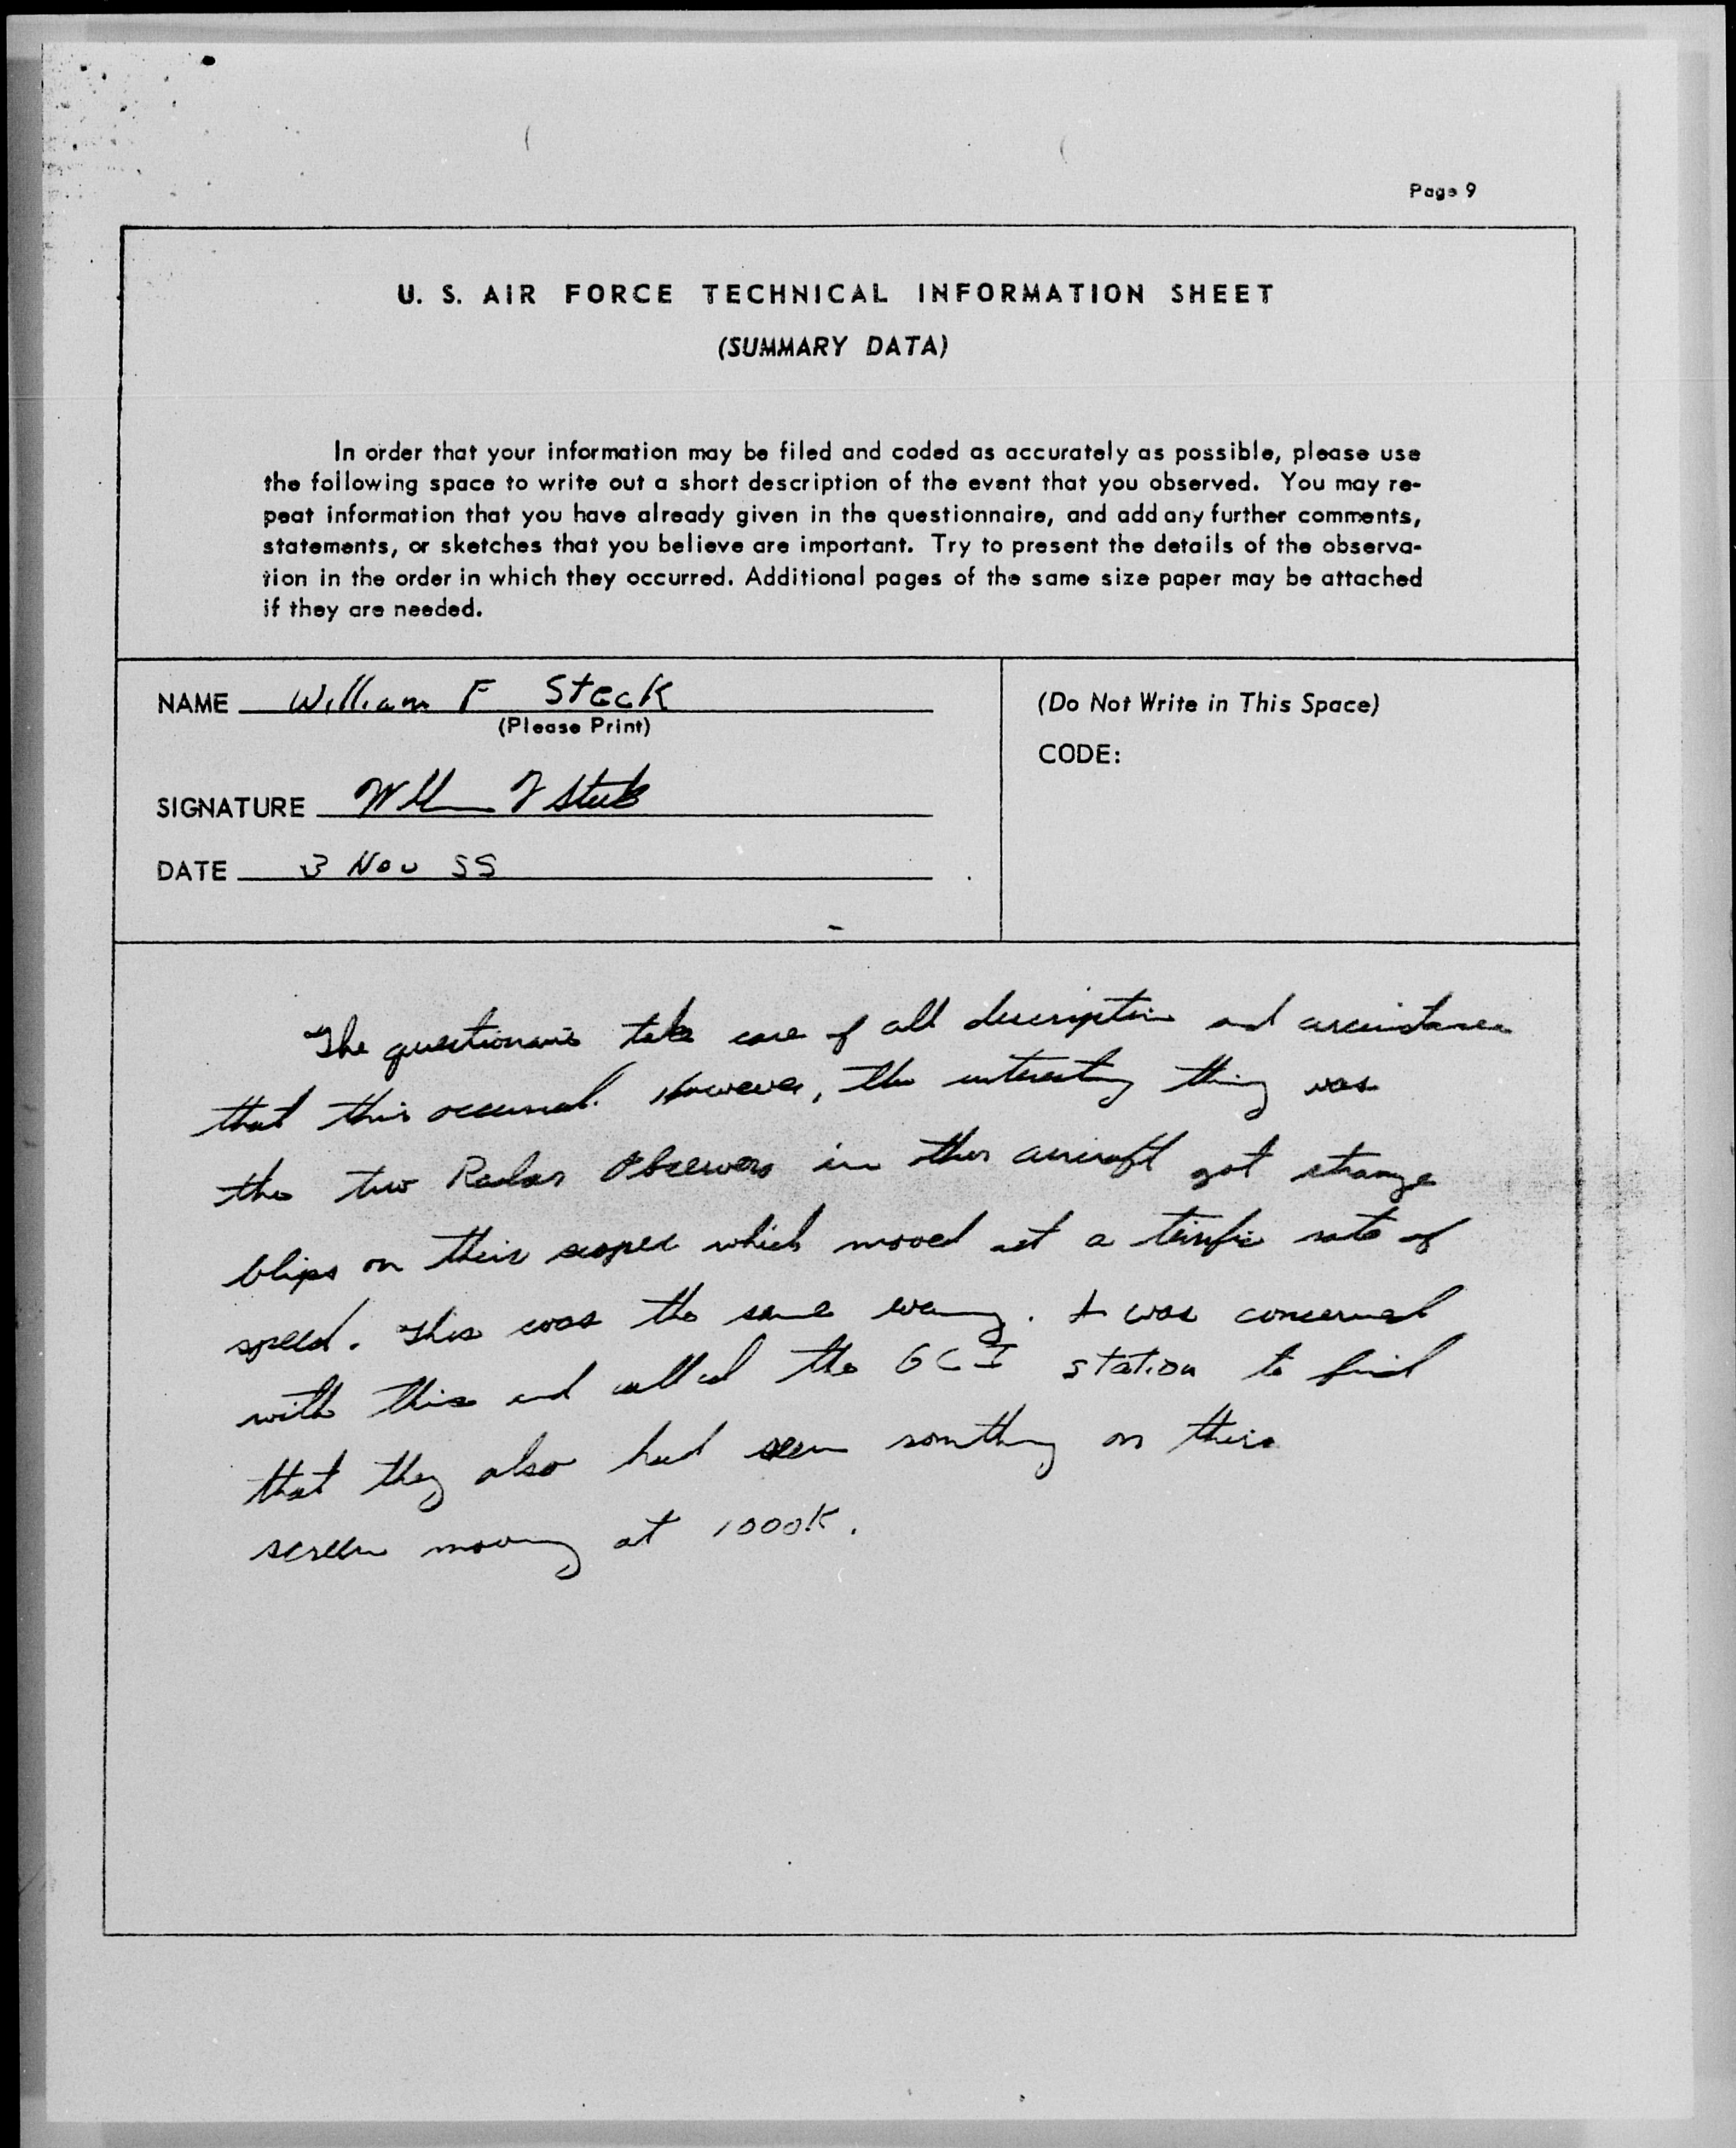 Page 9
U. S. AIR FORCE TECHNICAL INFORMATION SHEET
(SUMMARY DATA)
In order that your information may be filed and coded as accurately as possible, please use
the following space to write out a short description of the event that you observed. You may re-
peat information that you have already given in the questionnaire, and add any further comments,
statements, or sketches that you believe are important. Try to present the details of the observa-
tion in the order in which they occurred. Additional pages of the same size paper may be attached
if they are needed.
NAME William F Steck
(Please Print)
SIGNATURE William F Steck
DATE 3 Nov 55
(Do Not Write in This Space)
CODE:
The take care of all description and
that this occurred. However, the interesting thing was
the two Radar Observers in ther aircraft got strange
blips on their scopes which moved at a rate of
speed. This was the same evening. I was concerned
with this and called the GCI station to find
that they also had seen somthing on their
screen moving at 1000K.